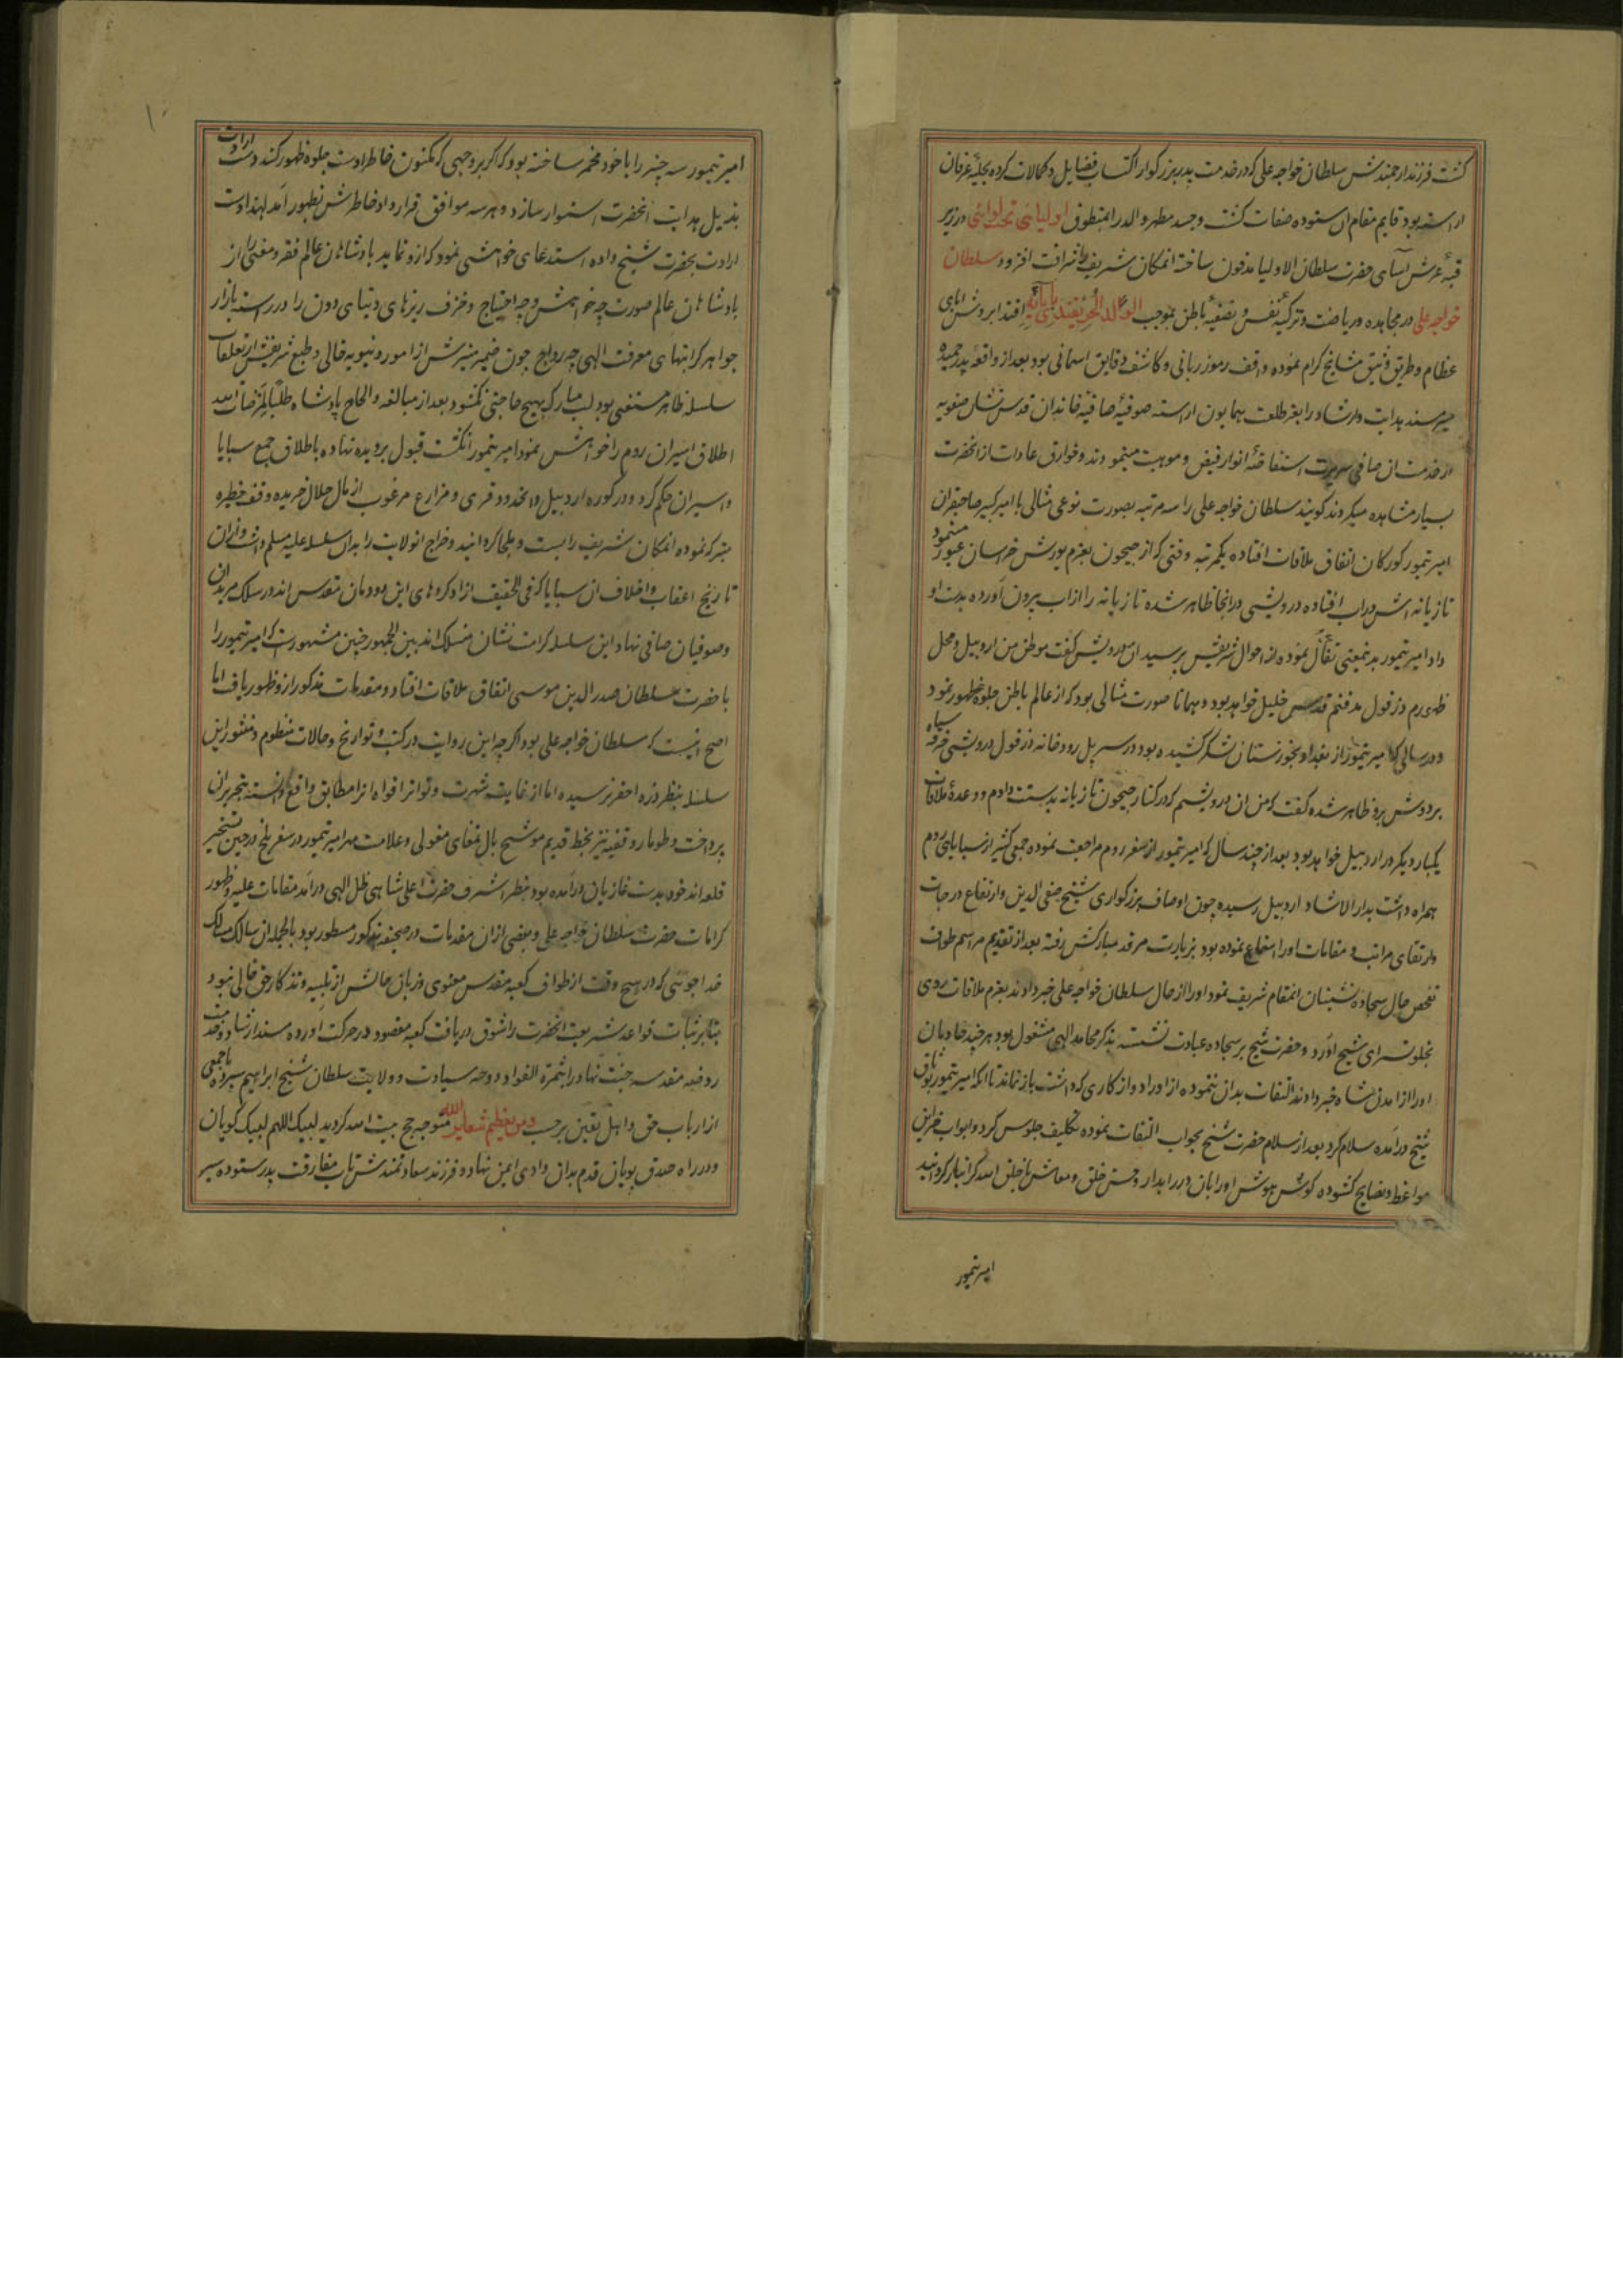 گشت فرزند ارجمندش سلطان خواجه علی که در خدمت پدر بزرگوار اکتساب فضایل و کمالات کرده بحلیهٔ عرفان
اراسته بود قایم مقام ان ستوده صفات گشت و جسد مطهر والد را بمنطوق اولیائی تحت قبائی در زیر
قبهٔ عرش آسای حضرت سلطان الاولیا مدفون ساخته انمکان شریف را شرافت افزود سلطان
خواجه علی در مجاهده و ریاضت و تزکیهٔ نفس و تصفیهٔ باطن بموجب الولد الحر یقتدی بآبائه اقتدا بروش ابای
عظام و طریق انیق مشایخ کرام نموده واقف رموز ربانی و کاشف دقایق اسمانی بود بعد از واقعهٔ پدر حمیده
سیر مسند هدایت و ارشاد را بفر طلعت همایون اراسته صوفیهٔ صافیهٔ خاندان قدس نشان صفویه
از خدمت ان صافی سریرت استفاضهٔ انوار فیض و موهبت مینمودند و خوارق عادات از انحضرت
بسیار مشاهده میکردند گویند سلطان خواجه علی را سه مرتبه بصورت نوعی مثالی با امیر کبیر صاحبقران
امیر تیمور کورکان اتفاق ملاقات افتاده یکمرتبه وقتی که از جیحون بعزم یورش خراسان عبور مینمود
تازیانه اش در اب افتاده درویشی در انجا ظاهر شده تازیانه را از اب بیرون آورده بدست او
داد امیر تیمور بدینمعنی تفأل نموده از احوال شریفش پرسید ان درویش گفت موطن من اردبیل و محل
ظهورم دزفول مدفنم قدس خلیل خواهد بود و همانا صورت مثالی بود که از عالم باطن جلوهٔ ظهور نمود
و در سالی که امیر تیمور از بغداد بخوزستان لشکر کشیده بود در سر پل رودخانه دزفول درویشی خرقه سیاه
بر دوش برو ظاهر شده گفت که من ان درویشم که در کنار جیحون تازیانه بدستت دادم و وعدهٔ ملاقات
یکبار دیگر در اردبیل خواهد بود بعد از چند سال که امیر تیمور از سفر روم مراجعت نموده جمعی کثیر از سبایای روم
همراه داشت بدار الارشاد اردبیل رسیده چون اوصاف بزرگواری شیخ صفی الدین و ارتفاع درجات
و ارتقای مراتب و مقامات او را استماع نموده بود بزیارت مرقد مبارکش رفته بعد از تقدیم مراسم طواف
تفحص حال سجاده نشینان انمقام شریف نمود او را از حال سلطان خواجه علی خبر دادند بعزم ملاقات روی
بخلوتسرای شیخ اورد و حضرت شیخ بر سجاده عبادت نشسته بذکر محامد الهی مشغول بود هر چند خادمان
او را از امدن شاه خبر دادند التفات بدان ننموده از اوراد و اذکاری که داشت باز نماند تا انکه امیر تیمور بوثاق
شیخ درآمده سلام کرد بعد از سلام حضرت شیخ بجواب التفات نموده تکلیف جلوس کرد و ابواب
مواعظ و نصایح گشوده گوش هوش او را بان درر ابدار و حسن خلق و معاش با خلق الله گرانبار گردانید
امیر تیمور
امیر تیمور سه چیز را با خود مخمر ساخته بود که اگر بر وجهی که مکنون خاطر اوست جلوه ظهور کند دست ارادت
بذیل هدایت انحضرت استوار سازد و هر سه موافق قرارداد خاطرش بظهور آمد لهذا دست
ارادت بحضرت شیخ داده استدعای خواهشی نمود که ازو نماید پادشاهان عالم فقر و معنی را از
پادشاهان عالم صورت چه خواهش و چه احتیاج و خزف ریزهای دنیای دون را در رسته بازار
جواهر گرانبهای معرفت الهی چه رواج چون ضمیر منیرش از امور دنیویه خالی و طبع شریفش از تعلقات
سلسله ظاهر مستغنی بود لب مبارک بهیچ حاجتی نگشود بعد از مبالغه و الحاح پادشاه طلبا لمرضات الله
اطلاق اسیران روم را خواهش نمود امیر تیمور انگشت قبول بر دیده نهاده باطلاق جمیع سبایا
و اسیران حکم کرد و در کوره اردبیل و انحدود قری و مزارع مرغوب از مال حلال خریده وقف حظیره
متبرکه نموده انمکان شریف را بست و ملجا گردانید و خراج انولایت را بدان سلسله علیه مسلم داشت و از ان
تاریخ اعقاب و اخلاف ان سبایا که فی الحقیقت ازاد کردهای این دودمان مقدس اند در سلک مریدان
و صوفیان صافی نهاد این سلسله کرامت نشان منسلک اند بین الجمهور چنین مشهورست که امیر تیمور را
با حضرت سلطان صدر الدین موسی اتفاق ملاقات افتاد و مقدمات مذکور ازو ظهور یافت اما
اصح انیست که سلطان خواجه علی بود اگر چه این روایت در کتب و تواریخ و حالات منظوم و منثور این
سلسله بنظر ذره احقر نرسیده اما از غایت شهرت و تواتر افواه انرا مطابق واقع دانسته بتحریر ان
پرداخت و طومار وقفیه نیز بخط قدیم موشح بال تمغای مغولی و علامت مهر امیر تیمور در سفر بلخ در حین تسخیر
قلعه اندخود بدست غازیان درآمده بود بنظر اشرف حضرت اعلی شاهی ظل الهی درآمد مقامات علیه و ظهور
کرامات حضرت سلطان خواجه علی و بعضی ازان مقدمات در صحیفه مذکور مسطور بود بالجمله ان سالک مسالک
خداجوئی که در هیچ وقت از طواف کعبه مقدس معنوی و زبان حالش از تلبیه و تذکار حق خالی نبود
بنابر ثبات قواعد شریعت انحضرت را شوق دریافت کعبه مقصود در حرکت آورده مسند ارشاد و خدمت
روضه مقدسه جنت نهاد را بثمرة الفواد دوحه سیادت و ولایت سلطان شیخ ابراهیم سپرده با جمعی
از ارباب حق و اهل یقین بر حسب و من یعظم شعایر الله متوجه حج بیت الله گردید لبیک اللهم لبیک گویان
و در راه صدق پویان قدم بدان وادی ایمن نهاد و فرزند سعادتمندش تاب مفارقت پدر ستوده سیر